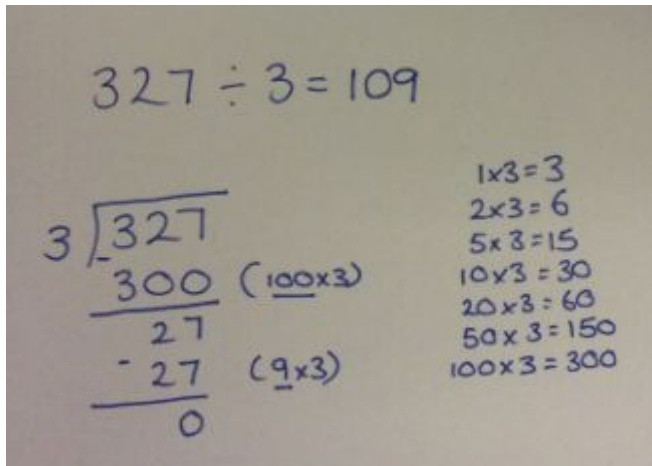 327 ÷ 3 = 109
3 327
- 300 (100x3)
27
- 27 (9x3)
0
1x3=3
2x3=6
5x3=15
10x3=30
20x3=60
50x3=150
100x3=300